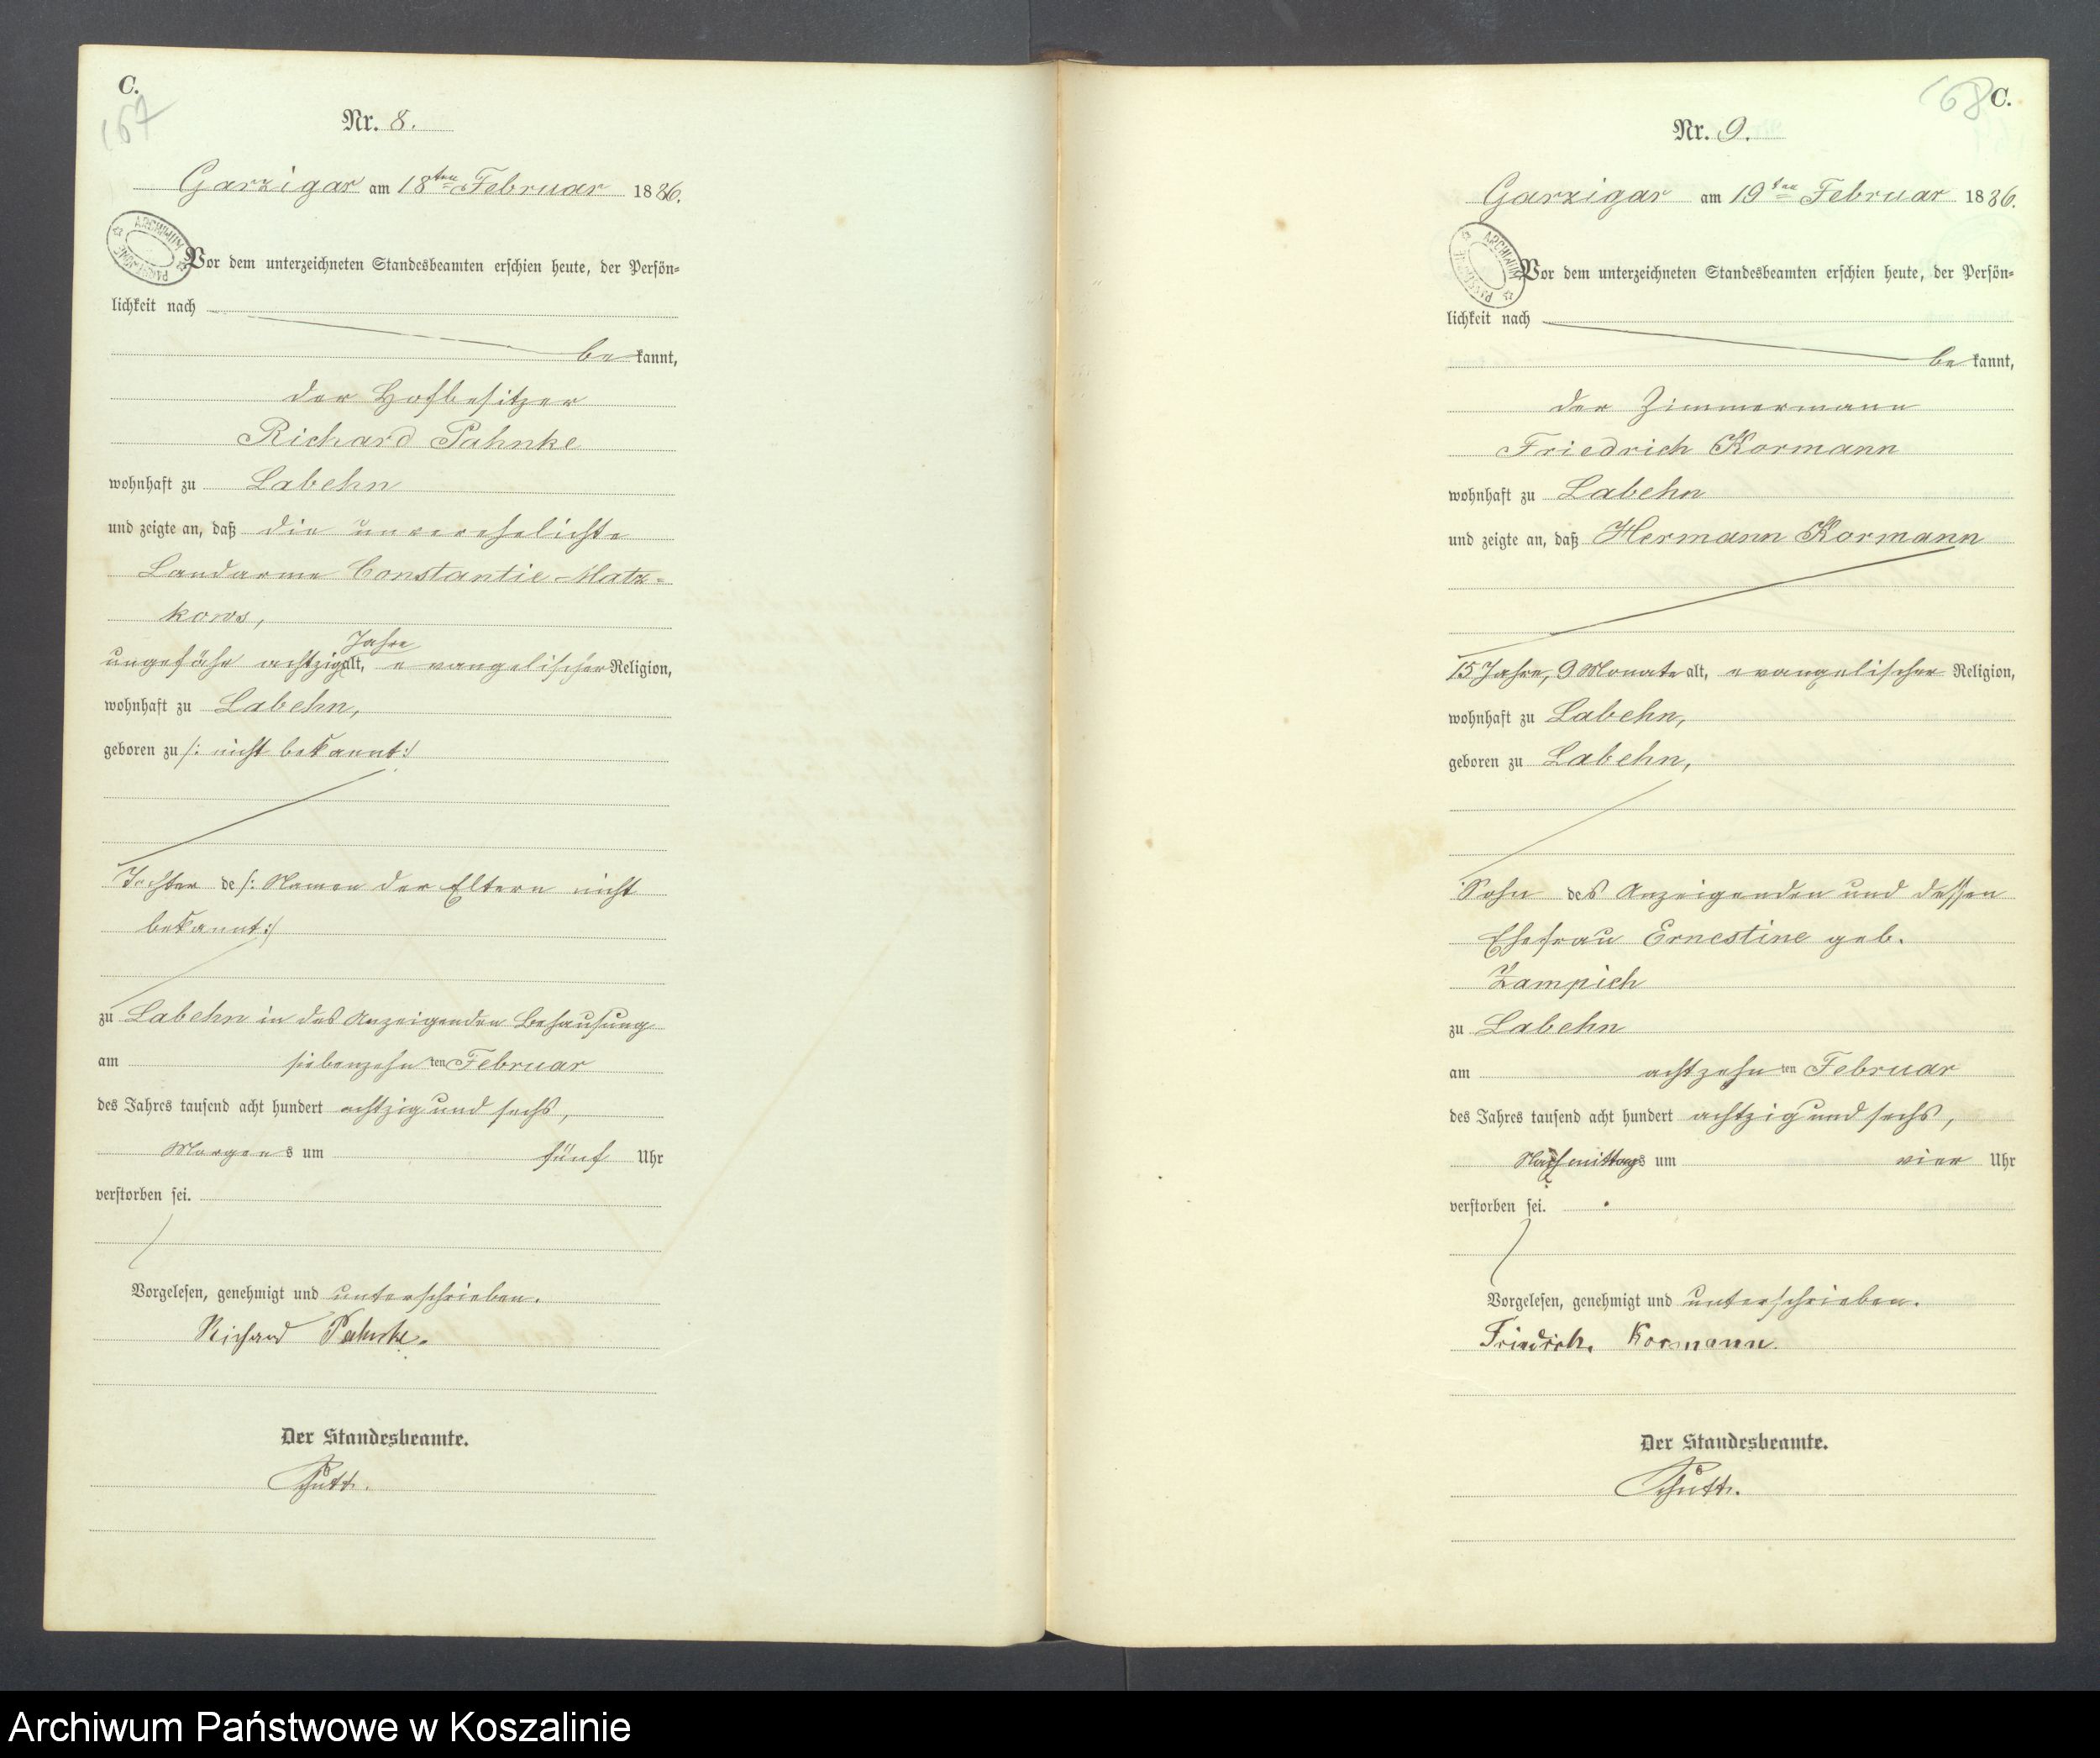 C.
167
Nr. 8.
Garzigar am 18ten Februar 1886.
ARCHIWUM PAŃSTWOWE
Vor dem unterzeichneten Standesbeamten erschien heute, der Persön=
lichkeit nach
bekannt,
der Hofbesitzer
Richard Pahnke
wohnhaft zu Labehn
und zeigte an, daß die unverehelichte
Landarme Constantie Matz=
kows,
Jahre
ungefähr achtzig alt, evangelischer Religion,
wohnhaft zu Labehn,
geboren zu /: nicht bekannt :/
Tochter de /: Namen der Eltern nicht
bekannt :/
zu Labehn in des Anzeigenden Behausung
am siebenzehnten Februar
des Jahres tausend acht hundert achtzig und sechs,
Morgens um fünf Uhr
verstorben sei.
Vorgelesen, genehmigt und unterschrieben.
Richard Pahnke.
Der Standesbeamte.
168 C.
Nr. 9.
Garzigar am 19ten Februar 1886.
ARCHIWUM PAŃSTWOWE
Vor dem unterzeichneten Standesbeamten erschien heute, der Persön=
lichkeit nach
bekannt,
der Zimmermann
Friedrich Kormann
wohnhaft zu Labehn
und zeigte an, daß Hermann Kormann
15 Jahre, 9 Monate alt, evangelischer Religion,
wohnhaft zu Labehn,
geboren zu Labehn,
Sohn des Anzeigenden und dessen
Ehefrau Ernestine geb.
Zampich
zu Labehn
am achtzehnten Februar
des Jahres tausend acht hundert achtzig und sechs,
Nachmittags um vier Uhr
verstorben sei.
Vorgelesen, genehmigt und unterschrieben.
Friedrich Kormann.
Der Standesbeamte.
Archiwum Państwowe w Koszalinie